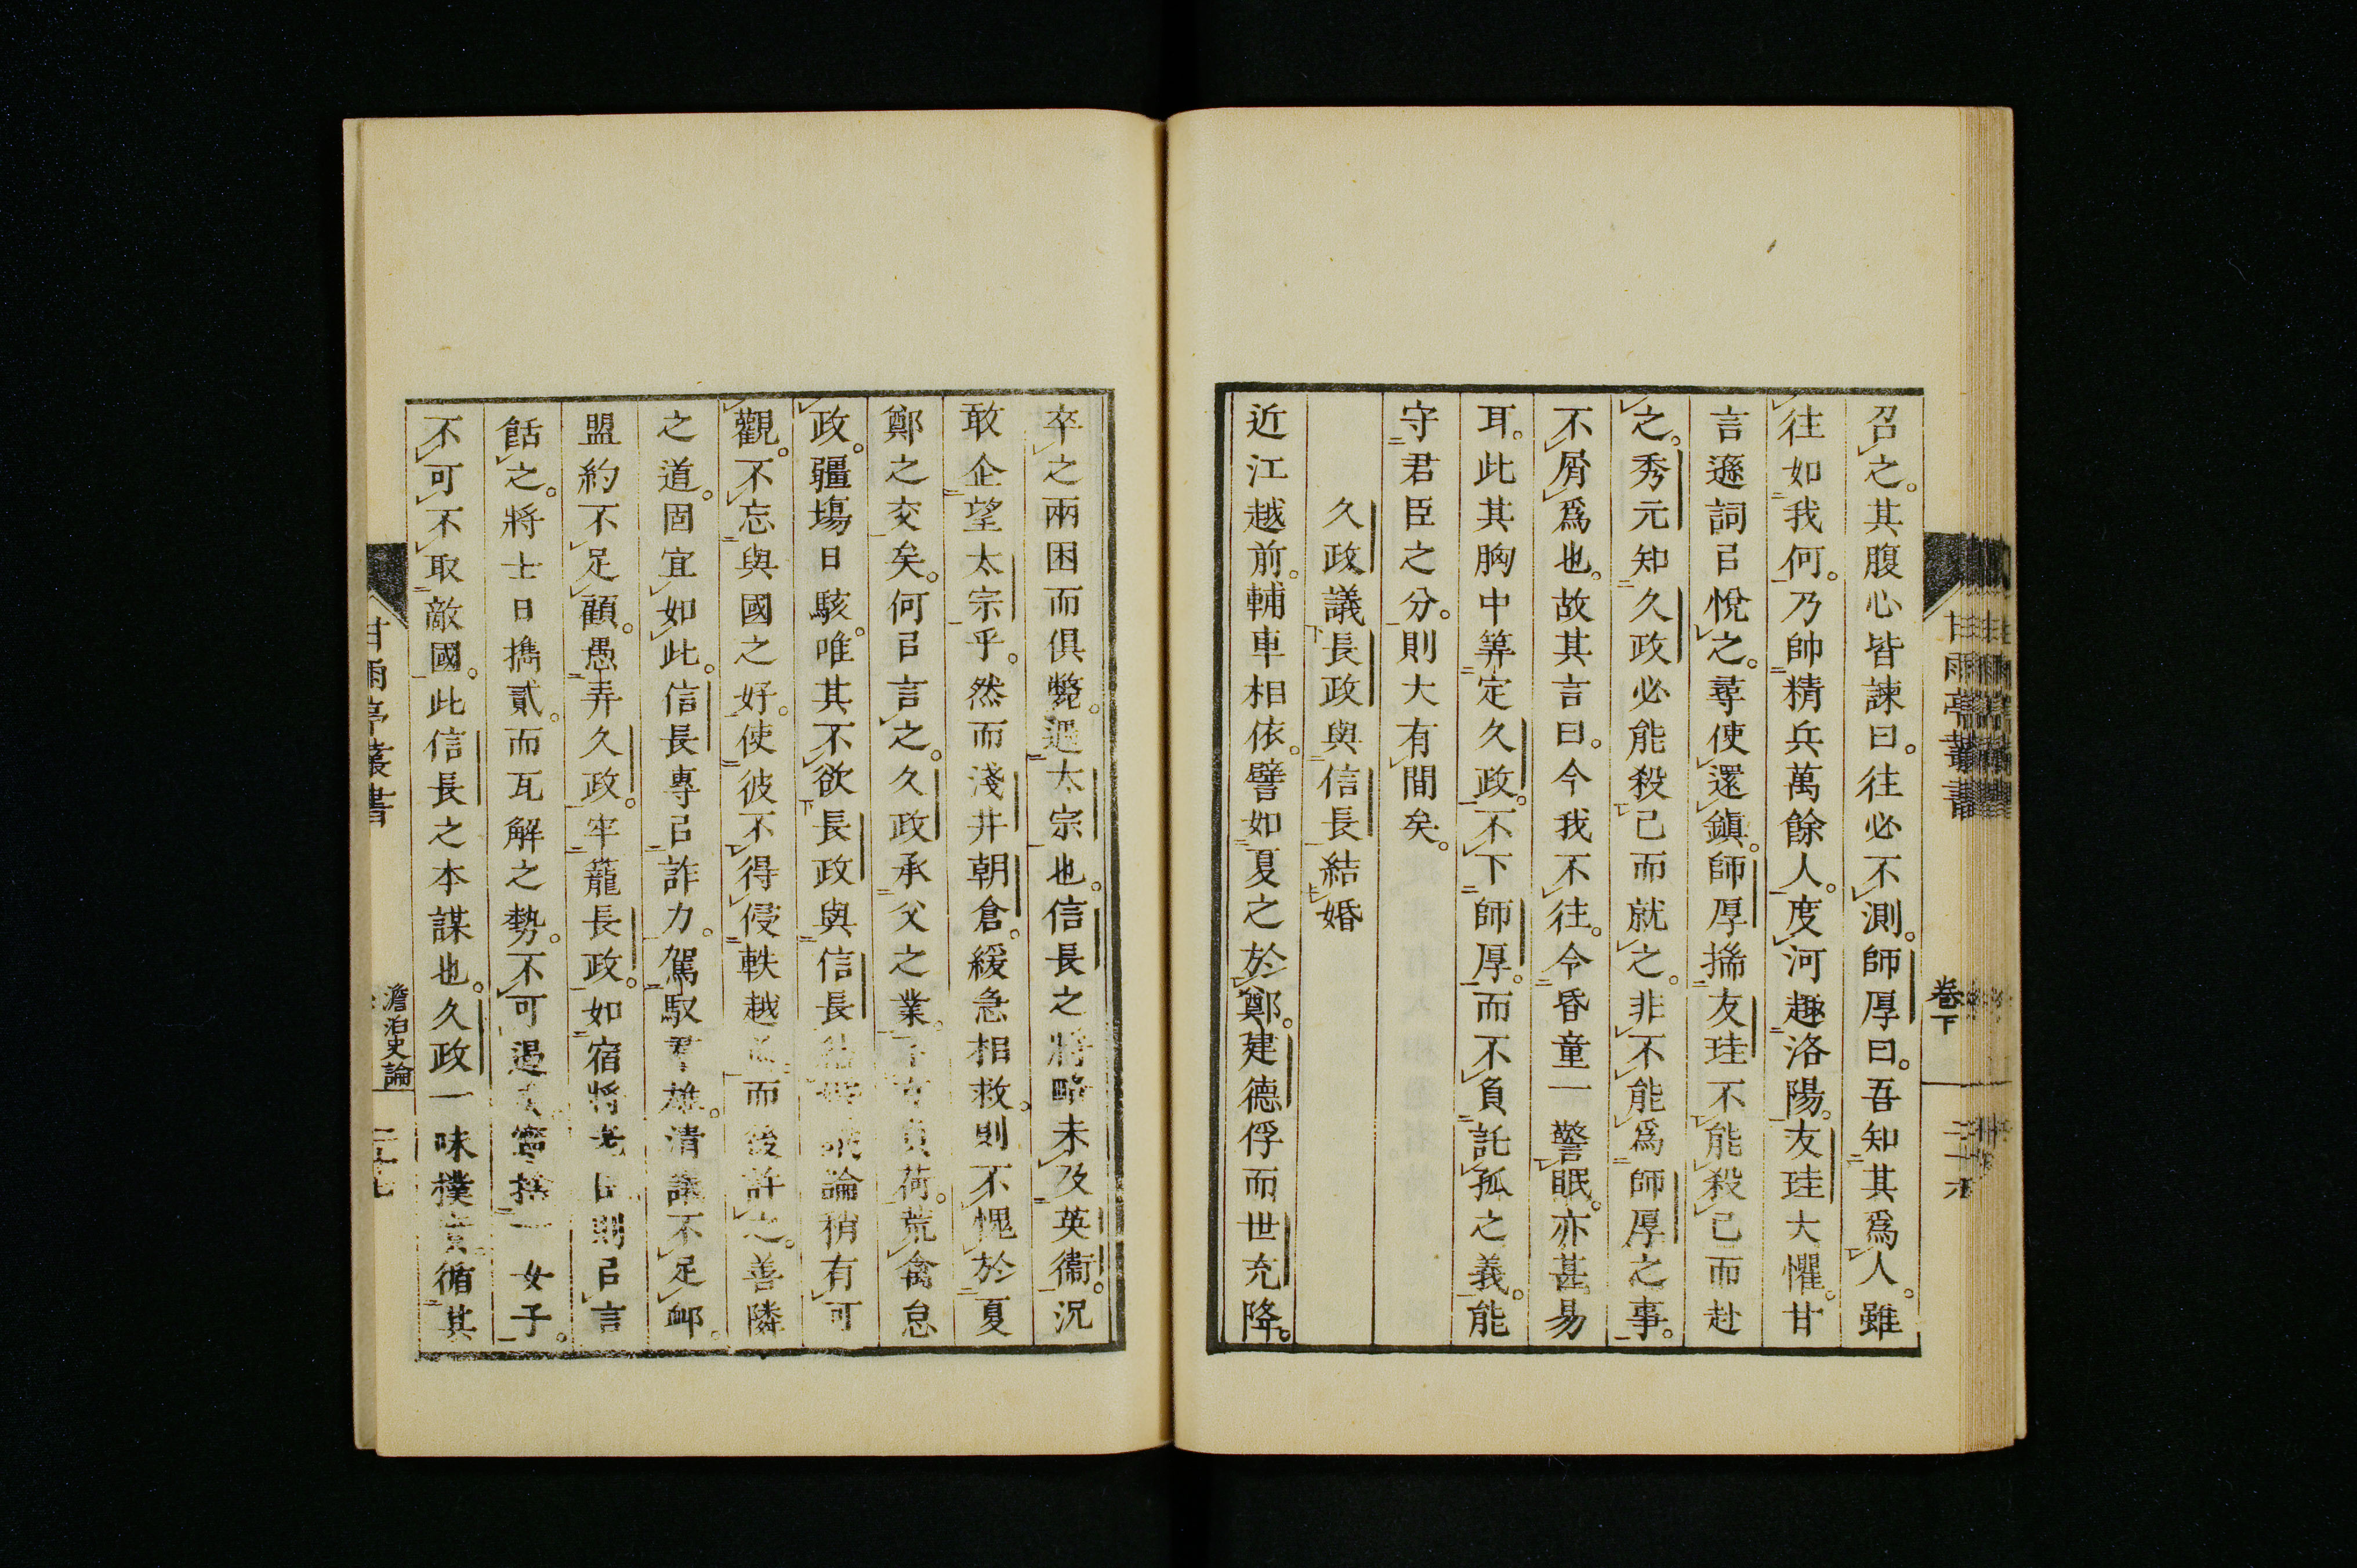 召之。其腹心皆諫曰。往必不測。師厚曰。吾知其爲人。雖
往如我何。乃帥精兵萬餘人。度河趣洛陽。友珪大懼。甘
言遜詞㠯悅之。尋使還鎭。師厚揣友珪不能殺己而赴
之。秀元知久政必能殺己而就之。非不能爲師厚之事。
不屑爲也。故其言曰。今我不往。令昏童一警眠。亦甚易
耳。此其胸中筭定久政。不下師厚。而不負託孤之義。能
守君臣之分。則大有間矣。
久政議長政與信長結婚
近江越前。輔車相依。譬如夏之於鄭。建德俘而世充降。
甘雨亭叢書
卷下
二十六
卒之兩困而俱斃。遇太宗也。信長之將略未及英衞。況
敢企望太宗乎。然而淺井朝倉。緩急相救。則不愧於夏
鄭之交矣。何㠯言之。久政承父之業。荷。荒禽怠
政。疆場日駭。唯其不欲長政與信長論稍有可
觀。不忘與國之好。使彼不得侵軼越而後許之。善隣
之道。固宜如此。信長專㠯詐力。駕馭羣雄。清議不足衈。
盟約不足顧。愚弄久政。牢籠長政。如宿將老臣。則㠯言
餂之。將士日攜貳。而瓦解之勢。不可遏一女子。
不可不取敵國。此信長之本謀也。久政一味樸循其
甘雨亭叢書
澹泊史論
二十七